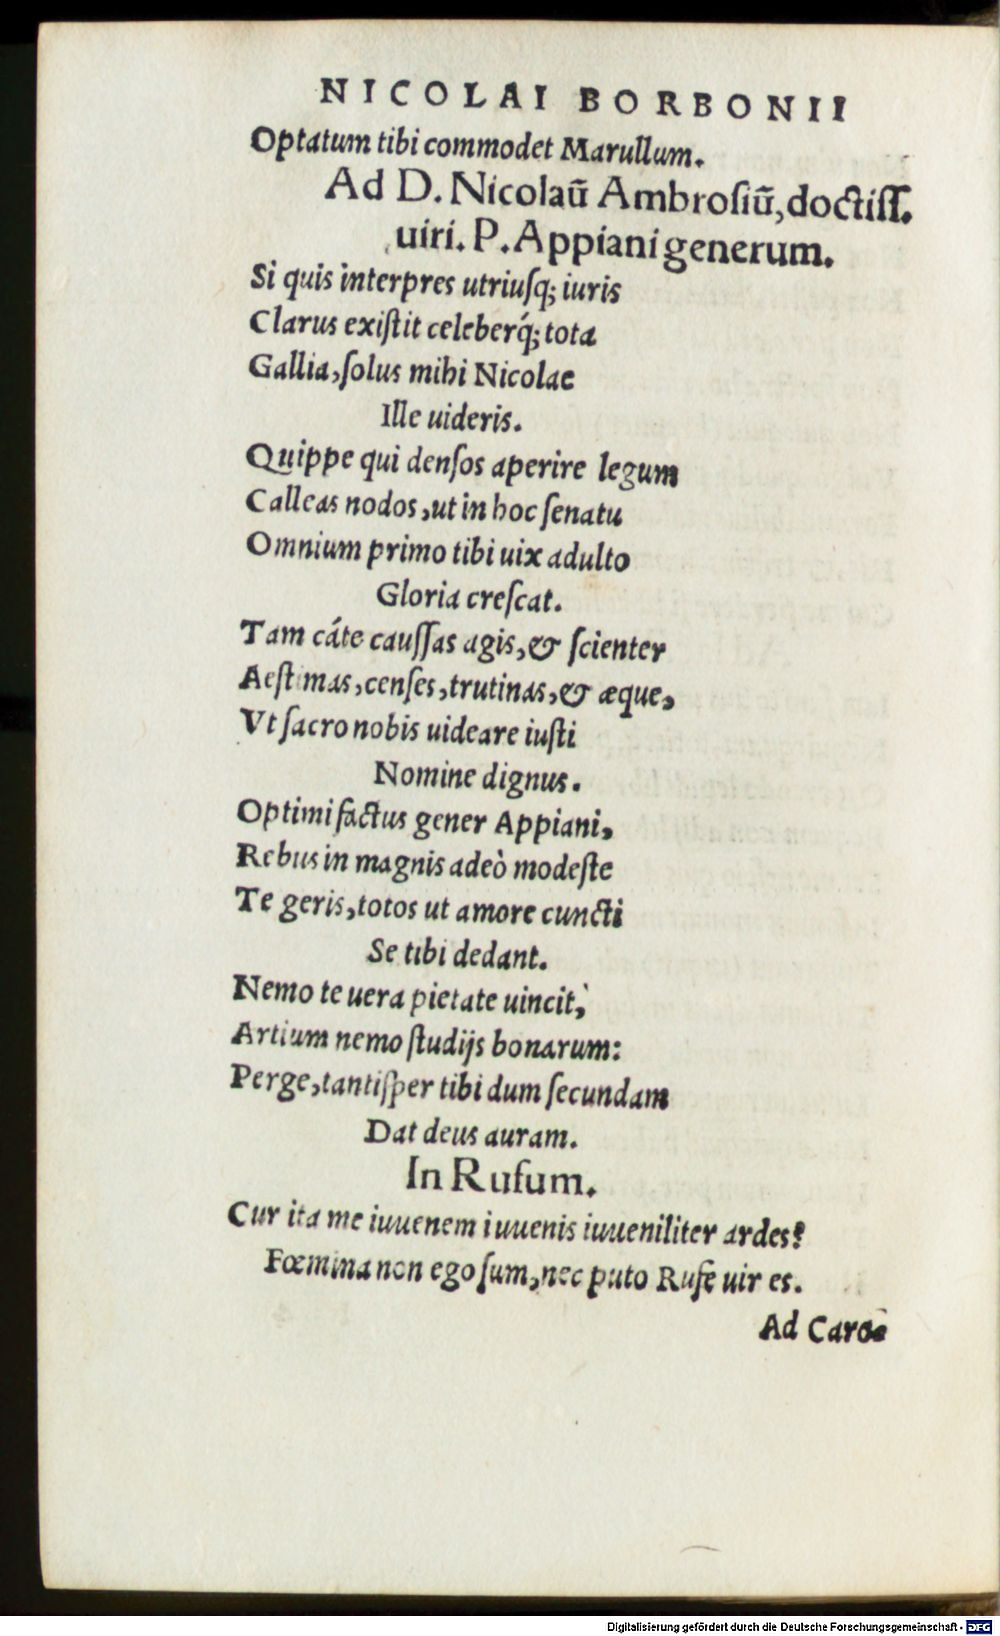 NICOLAI BORBONII
Optatum tibi commodet Marullum.
Ad D. Nicolaũ Ambroſiũ, doctiſſ.
uiri. P. Appiani generum.
Si quis interpres utriuſq; iuris
Clarus exiſtit celeberq́; tota
Gallia, ſolus mihi Nicolae
Ille uideris.
Quippe qui denſos aperire legum
Calleas nodos, ut in hoc ſenatu
Omnium primo tibi uix adulto
Gloria creſcat.
Tam cáte cauſſas agis, & ſcienter
Aeſtimas, cenſes, trutinas, & æque,
Vt ſacro nobis uideare iuſti
Nomine dignus.
Optimi factus gener Appiani,
Rebus in magnis adeò modeſte
Te geris, totos ut amore cuncti
Se tibi dedant.
Nemo te uera pietate uincit,
Artium nemo ſtudijs bonarum:
Perge, tantiſper tibi dum ſecundam
Dat deus auram.
In Rufum.
Cur ita me iuuenem iuuenis iuueniliter ardes?
Fœmina non ego ſum, nec puto Rufe uir es.
Ad
Digitalisierung gefördert durch die Deutsche Forschungsgemeinschaft - DFG